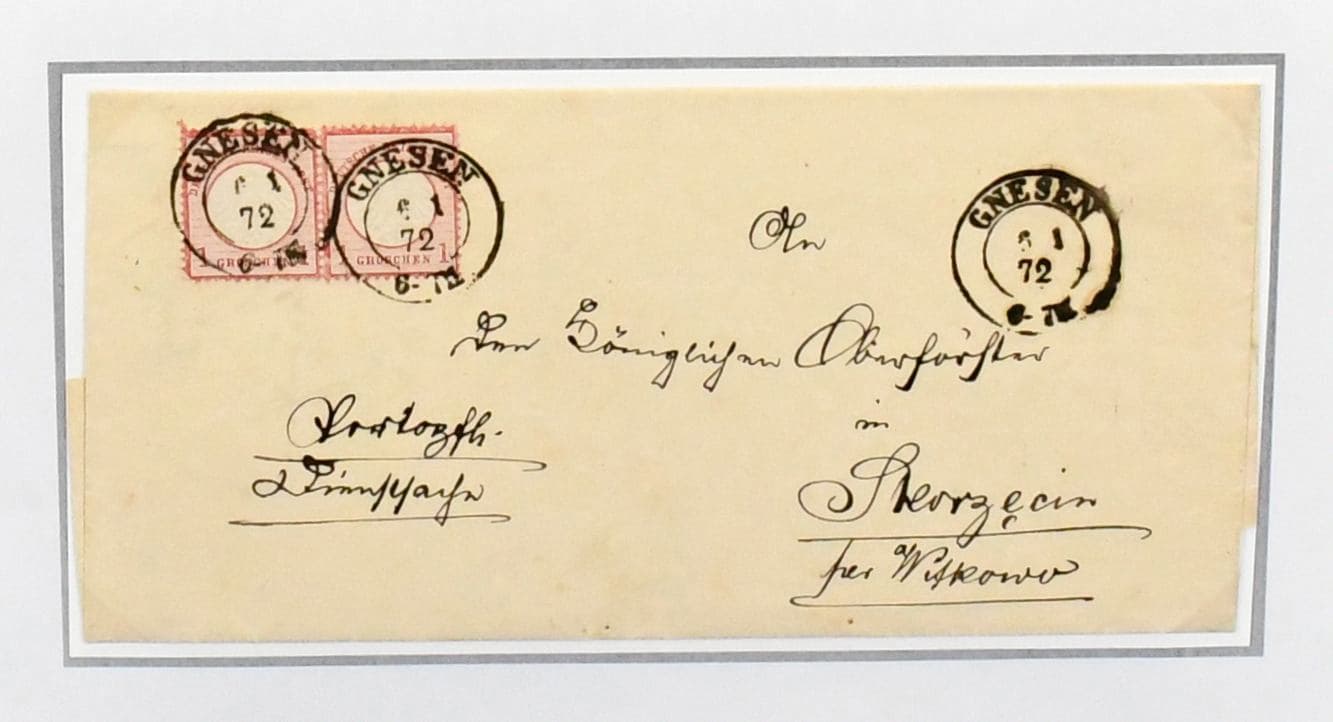 GNESEN
6 1
72
6-7N
1 GROSCHEN 1
GNESEN
6 1
72
6-7N
DEUTSCHE
GROSCHEN 1
GNESEN
6 1
72
6-7N
An
den Königlichen Oberförster
in
Skorzęcin
per Witkowo
Portopfl.
Dienstsache